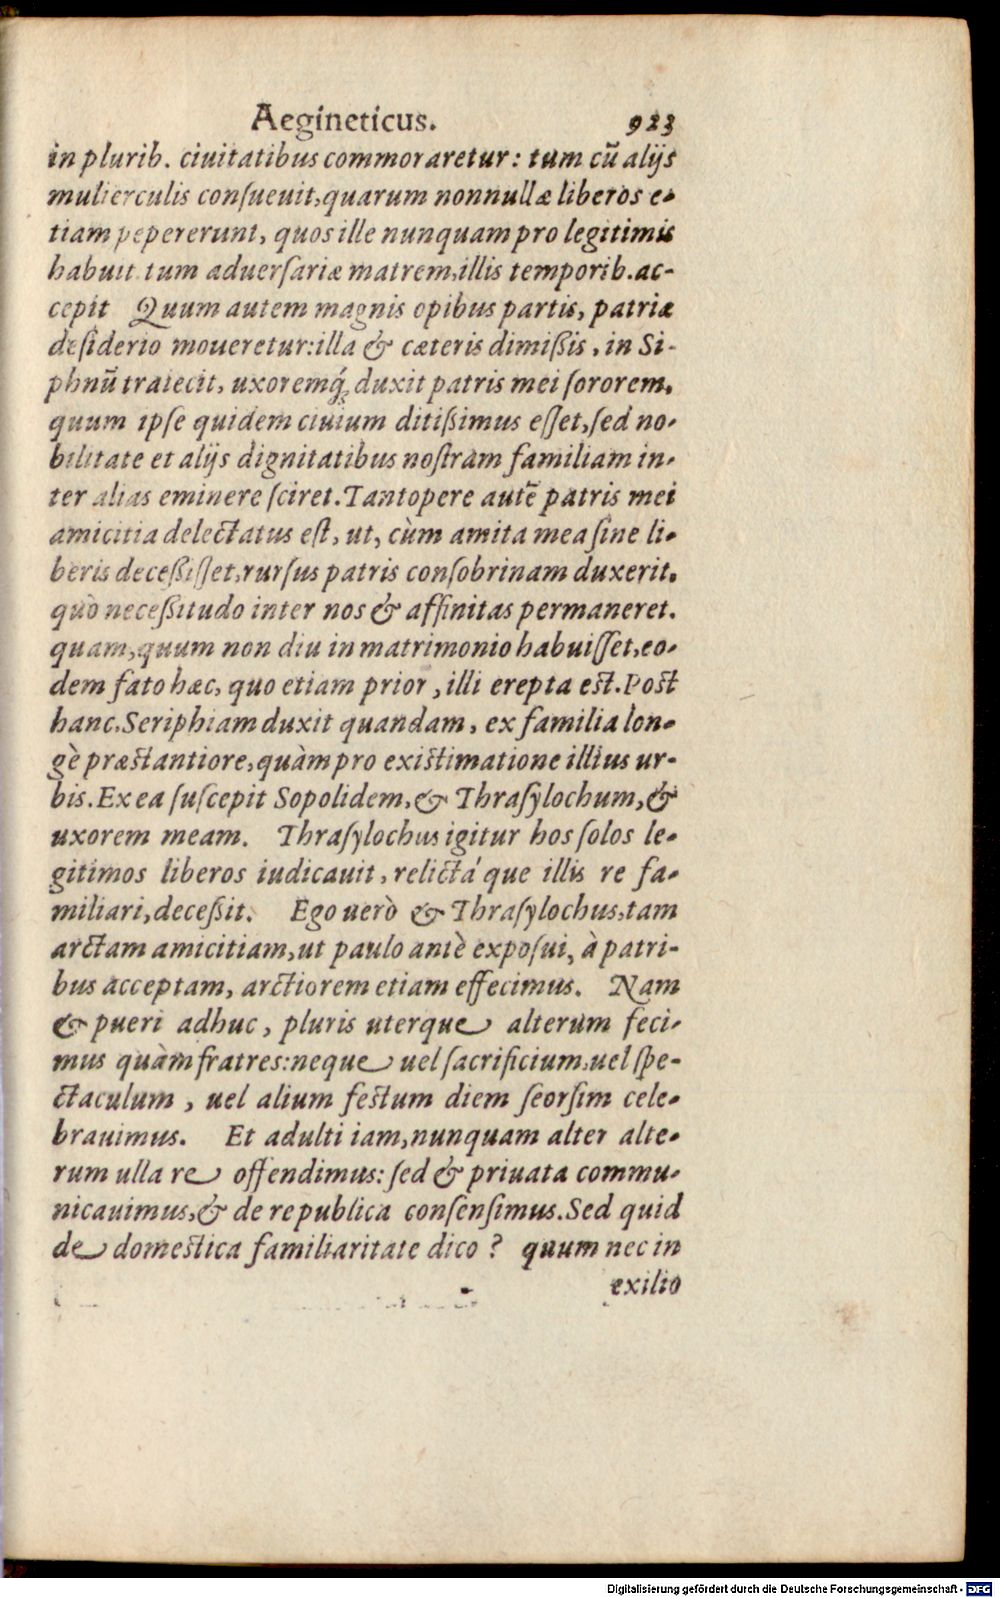 Aegineticus. 923
in plurib. ciuitatibus commoraretur: tum cū alijs
mulierculis conſueuit, quarum nonnullæ liberos e-
tiam pepererunt, quos ille nunquam pro legitimis
habuit. tum aduerſariæ matrem, illis temporib. ac-
cepit Quum autem magnis opibus partis, patriæ
deſiderio moueretur: illa & cæteris dimiſsis, in Si-
phnū traiecit, uxoremq́; duxit patris mei ſororem,
quum ipſe quidem ciuium ditiſsimus eſſet, ſed no-
bilitate et alijs dignitatibus noſtram familiam in-
ter alias eminere ſciret. Tantopere autē patris mei
amicitia delectatus eſt, ut, cùm amita mea ſine li-
beris deceſsiſſet, rurſus patris conſobrinam duxerit,
quò neceſsitudo inter nos & affinitas permaneret.
quam, quum non diu in matrimonio habuiſſet, eo-
dem fato hæc, quo etiam prior, illi erepta est. Post
hanc, Seriphiam duxit quandam, ex familia lon-
gè præstantiore, quàm pro existimatione illius ur-
bis. Ex ea ſuſcepit Sopolidem, & Thraſylochum, &
uxorem meam. Thraſylochus igitur hos ſolos le-
gitimos liberos iudicauit, relictá que illis re fa-
miliari, deceſsit. Ego uerò & Thraſylochus, tam
arctam amicitiam, ut paulo antè expoſui, à patri-
bus acceptam, arctiorem etiam effecimus. Nam
& pueri adhuc, pluris uterque alterum feci-
mus quàm fratres: neque uel ſacrificium, uel ſpe-
ctaculum, uel alium festum diem ſeorſim cele-
brauimus. Et adulti iam, nunquam alter alte-
rum ulla re offendimus: ſed & priuata commu-
nicauimus, & de republica conſenſimus. Sed quid
de domestica familiaritate dico? quum nec in
exilio
Digitalisierung gefördert durch die Deutsche Forschungsgemeinschaft - DFG